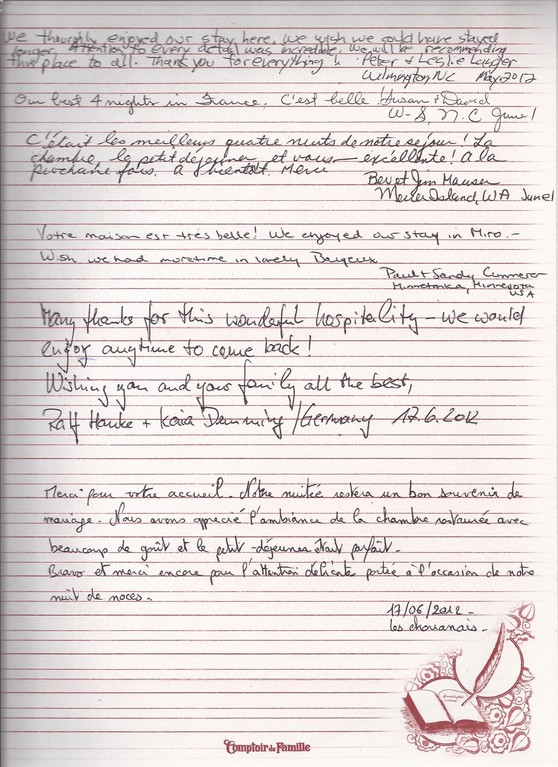 We thouroughly enjoyed our stay here. We wish we could have stayed
longer. Attention to every detail was incredible. We will be recommending
this place to all. Thank you for everything! Peter & Leslie
Wilmington NC May 2012
Our best 4 nights in France. C'est belle! Susan + David
W-S, N.C June 1
C'était les meilleurs quatre nuits de notre séjour! La
chambre, le petit déjeuner, et vous — excellente! A la
prochaine fois. A bientôt. Merci
Bev et Jim
Mercer Island, WA June 1
Votre maison est très belle! We enjoyed our stay in Miro.-
Wish we had more time in lovely Bayeux
Paul + Sandy
Minnetonka, Minnesota
USA
Many thanks for this wonderful hospitality - we would
enjoy anytime to come back!
Wishing you and your family all the best,
Ralf Hanke + Demming / Germany 17.6.2012
Merci pour votre accueil. Notre nuitée restera un bon souvenir de
mariage. Nous avons apprecié l'ambiance de la chambre restaurée avec
beaucoup de goût et le petit-déjeuner était parfait.
Bravo et merci encore pour l'attention délicate portée à l'occasion de notre
nuit de noces.
17/06/2012 -
les chouanais -
Comptoir de Famille